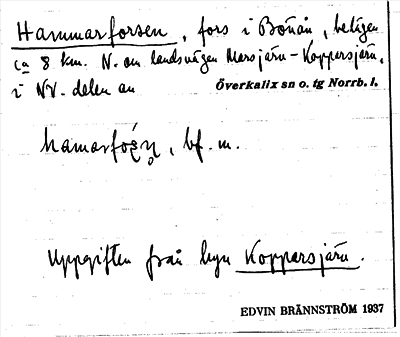 Hammarforsen, fors i Bönån, belägen
ca 8 km. N. om landsvägen Marsjärv - Koppersjärv,
i NV. delen av Överkalix sn o. tg Norrb. l.
bf. m.
Uppgiften från byn Koppersjärv.
EDVIN BRÄNNSTRÖM 1937